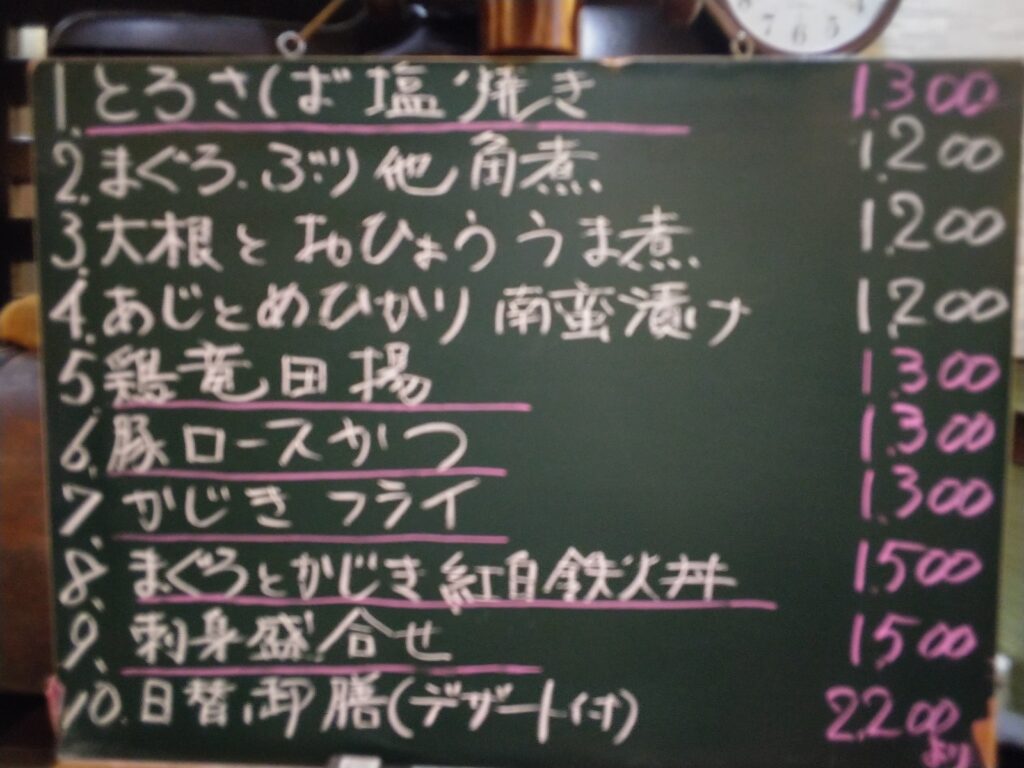 1. とろさば塩焼き 1.300
2. まぐろ、ぶり他角煮 1.200
3. 大根とおひょううま煮 1.200
4. あじとめひかり南蛮漬け 1.200
5. 鶏竜田揚 1.300
6. 豚ロースかつ 1.300
7. かじきフライ 1.300
8. まぐろとかじき紅白鉄火丼 1.500
9. 刺身盛合せ 1.500
10. 日替御膳(デザート付) 2.200より
8 7 6 5 4